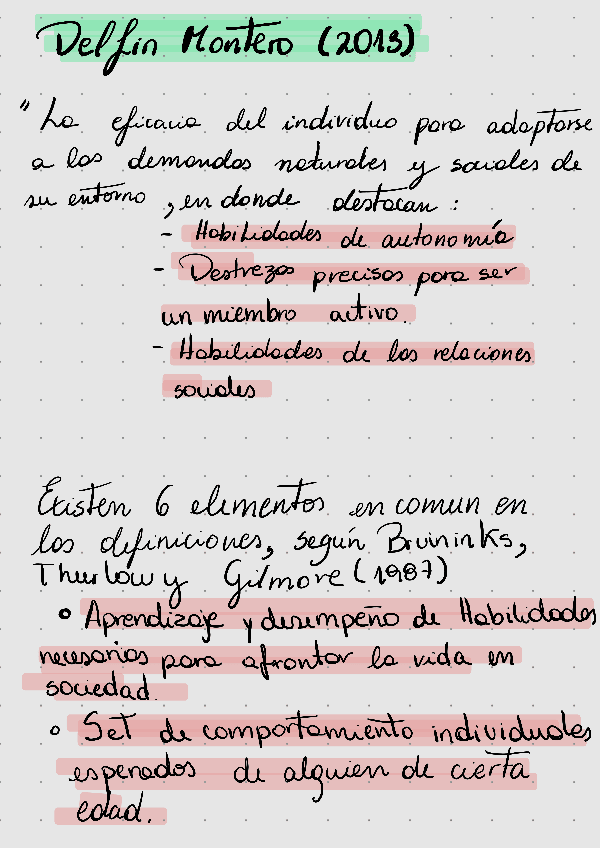 Delfín Montero (2013)
"La eficacia del individuo para adaptarse
a las demandas naturales y sociales de
su entorno, en donde destacan:
- Habilidades de autonomía
- Destrezas precisas para ser
un miembro activo.
- Habilidades de las relaciones
sociales
Existen 6 elementos en comun en
las definiciones, según Bruininks,
Thurlow y Gilmore (1987)
• Aprendizaje y desempeño de Habilidades
necesarias para afrontar la vida en
sociedad.
• Set de comportamiento individuales
esperados de alguien de cierta
edad.